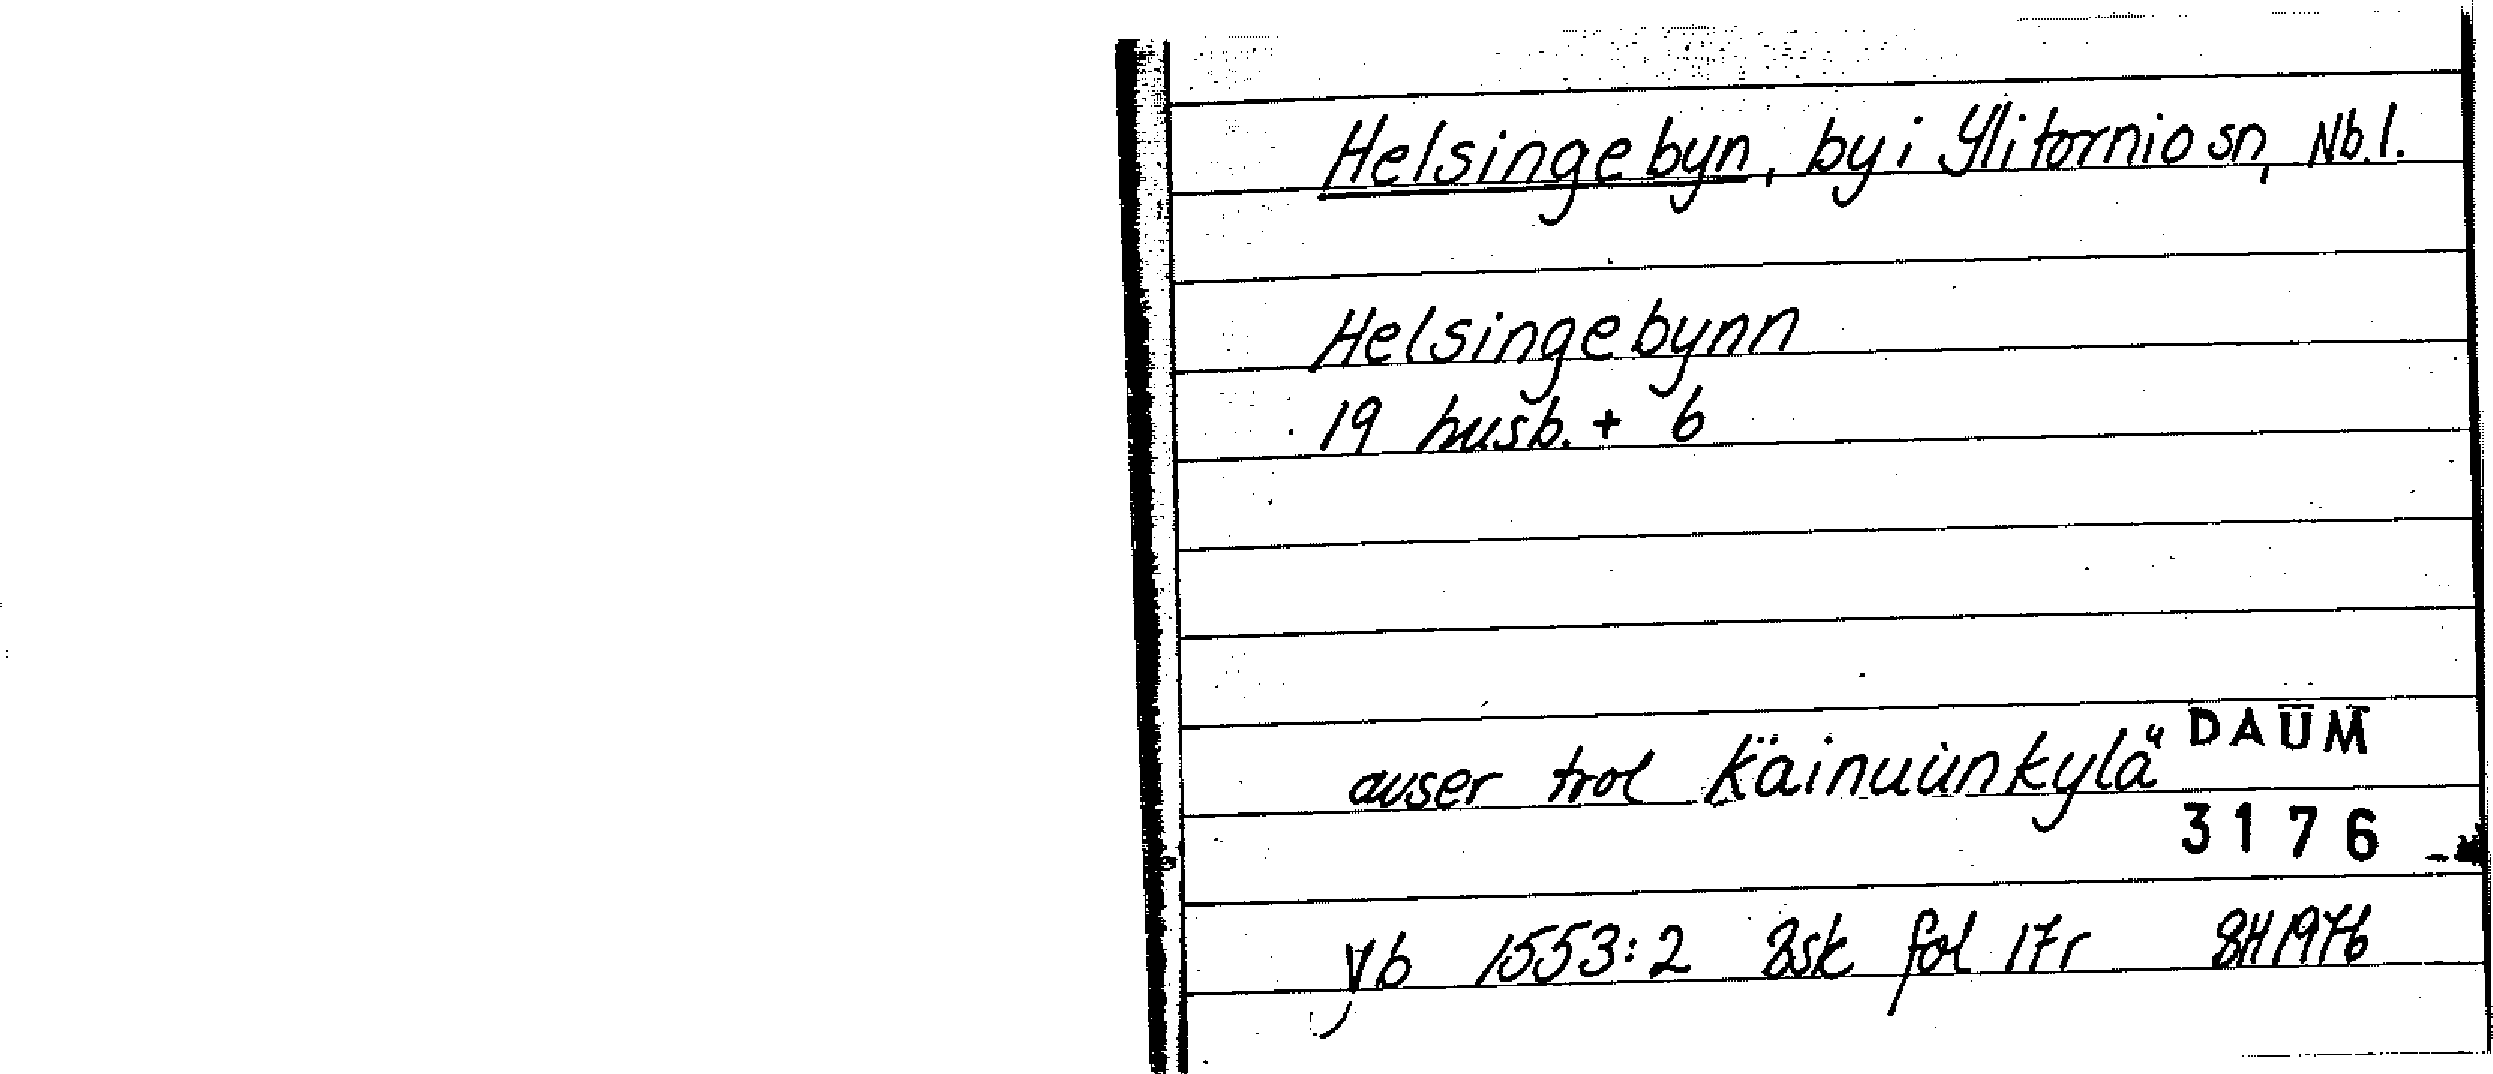 Helsingebyn, by i Ylitornio sn, Nb.l.
Helsingebynn
19 husb. + 6
avser trol Kainuunkylä
DAUM
3176
yb 1553:2 8sk fol 17r 8H 1976